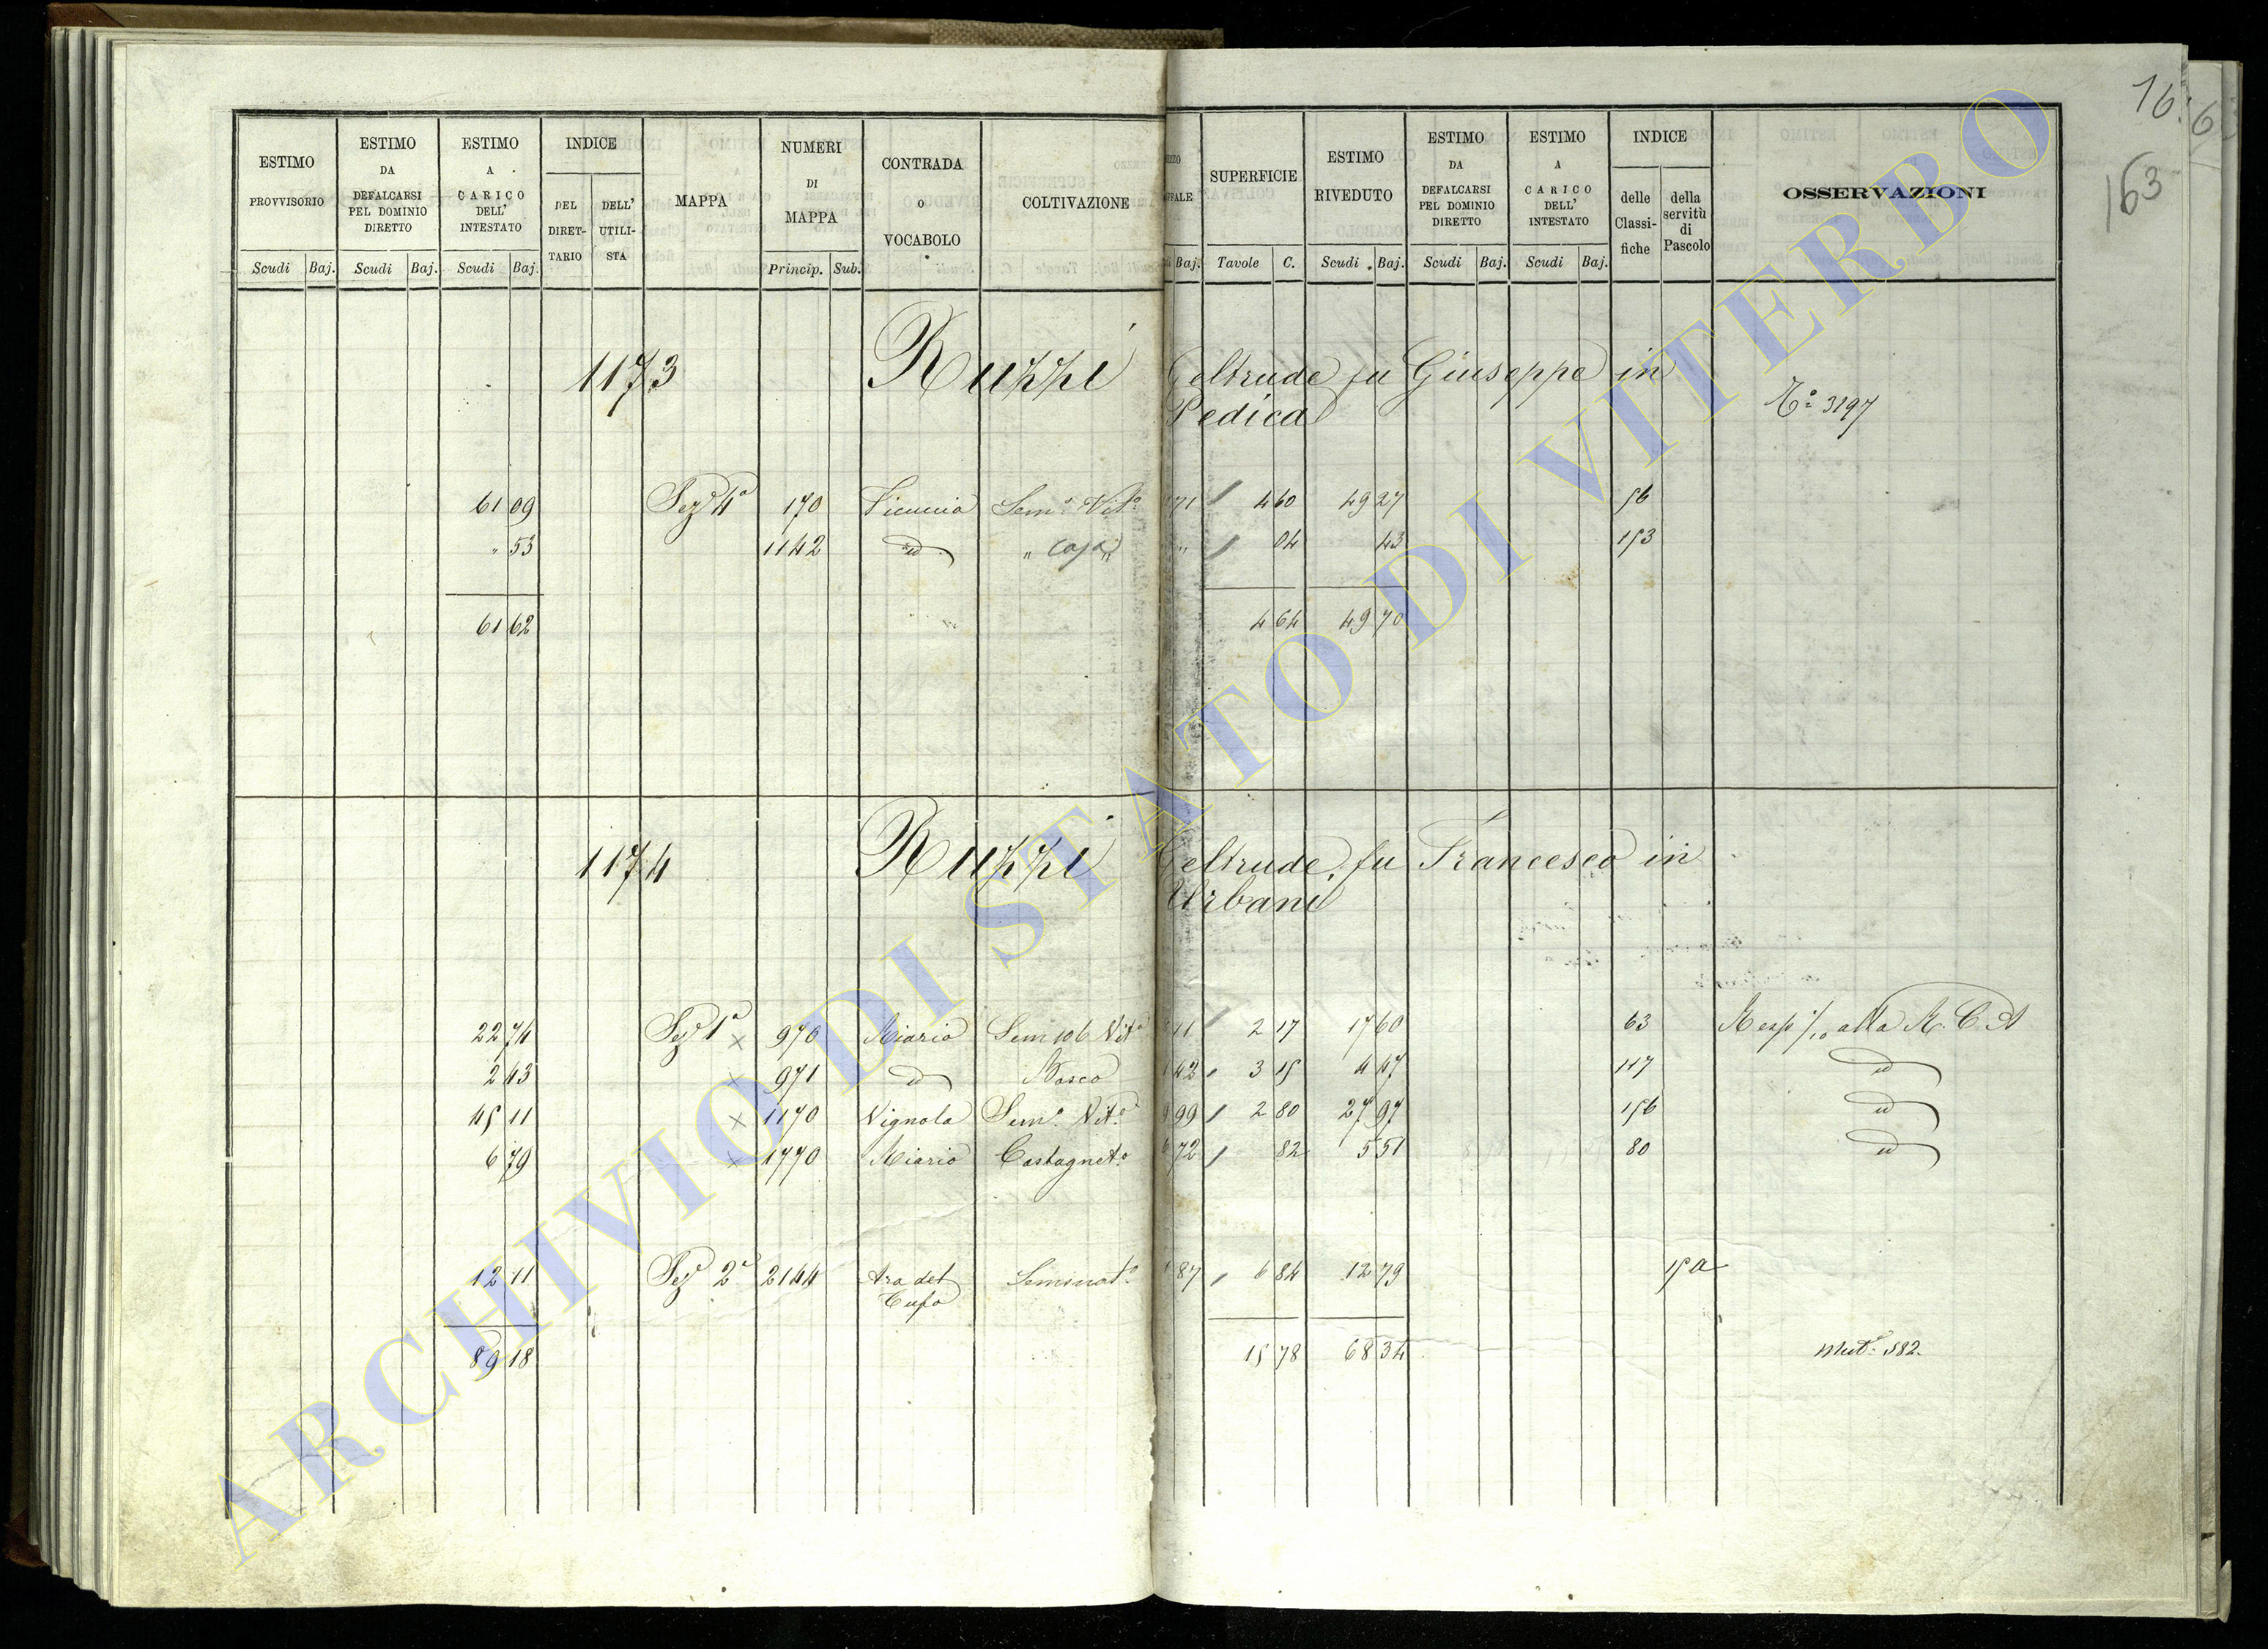 16:6
163
ESTIMO PROVVISORIO Scudi Baj.
ESTIMO DA DEFALCARSI PEL DOMINIO DIRETTO Scudi Baj.
ESTIMO A CARICO DELL' INTESTATO Scudi Baj.
INDICE DEL DIRET-TARIO DELL' UTILI-STA
MAPPA
NUMERI DI MAPPA Princip. Sub.
CONTRADA O VOCABOLO
COLTIVAZIONE
Baj.
SUPERFICIE Tavole C.
ESTIMO RIVEDUTO Scudi Baj.
ESTIMO DA DEFALCARSI PEL DOMINIO DIRETTO Scudi Baj.
ESTIMO A CARICO DELL' INTESTATO Scudi Baj.
INDICE delle Classi-fiche della servitù di Pascolo
OSSERVAZIONI
1173 Ruzzi Geltrude fu Giuseppe in
Pedica
No 3197
61 09 Sezе 4a 170 Sem. Vit. 71 4 60 49 27 56
" 53 1142 id " casa " " 04 43 153
61 62 4 64 49 70
1174 Ruzzi Geltrude fu Francesco in
Urbani
22 74 Seze 1a x 970 Miario Vit. 11 2 17 17 60 63 Resp 1/10 alla R. C. A
2 43 x 971 id Bosco 42 3 15 4 47 117 id
45 11 x 1170 Vignola Sem. Vit. 99 2 80 27 97 156 id
6 79 x 1770 Miario Castagneto 72 82 5 51 80 id
12 11 Seze 2a 2144 Ara del Seminato 87 6 84 12 79 15 a
Tufo
89 18 15 78 68 34 Mut. 582.
ARCHIVIO DI STATO DI VITERBO